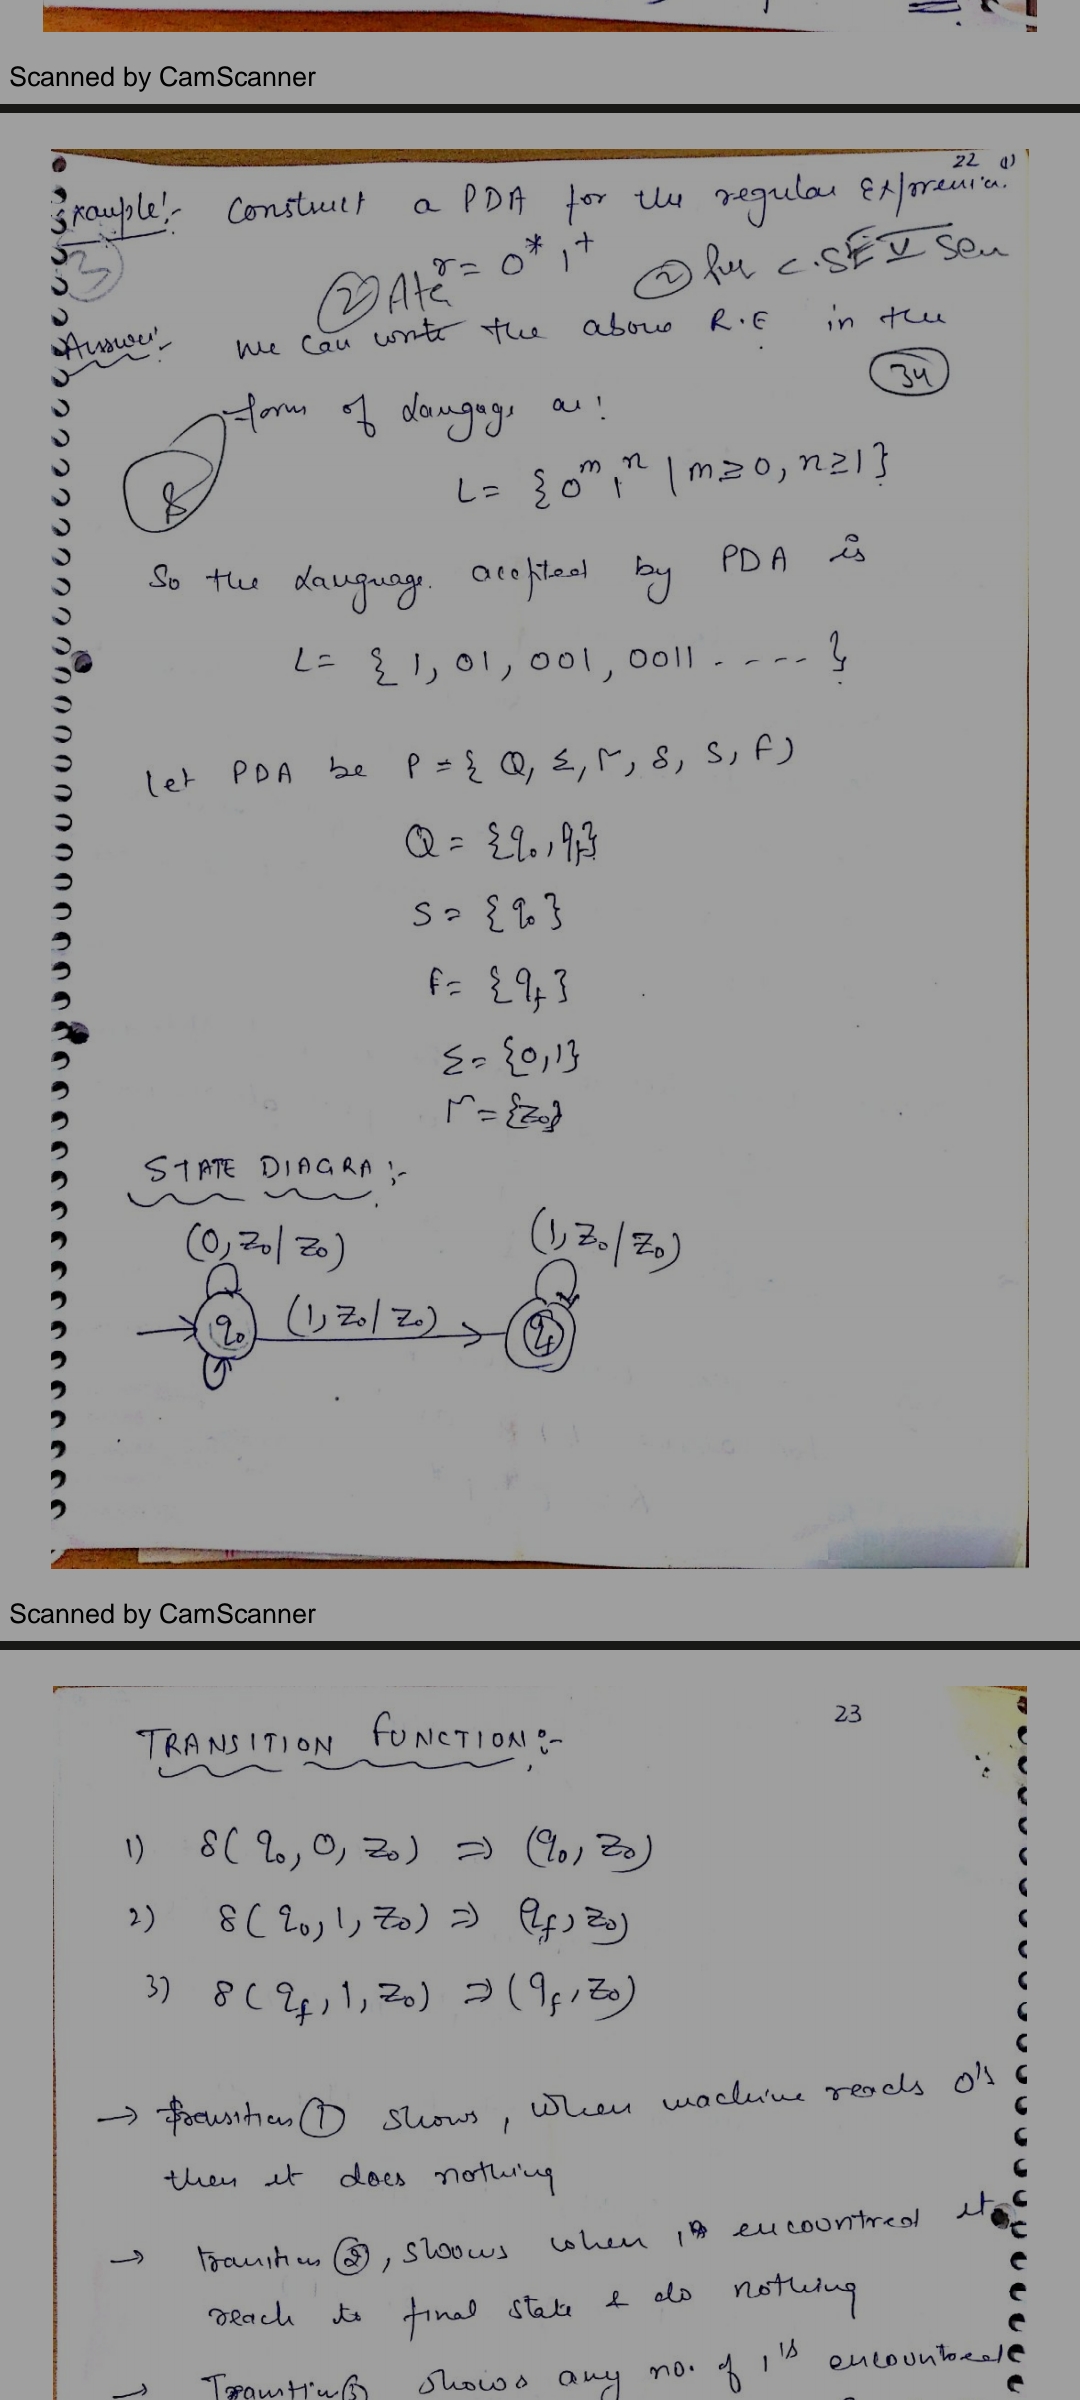 Scanned by CamScanner
22
Example:- Construct a PDA for the regular Expression
r = 0* 1+
② for C.SE V Sem
Answer:- We can write the above R.E in the
34
form of Language as:
L = {0^m 1^n | m≥0, n≥1}
So the Language accepted by PDA is
L = {1, 01, 001, 0011 ..... }
Let PDA be P = { Q, Σ, Γ, δ, S, F)
Q = {q₀, q_f}
S = {q₀}
F = {q_f}
Σ = {0,1}
Γ = {z₀}
STATE DIAGRA:-
(0, z₀/z₀) (1, z₀/z₀)
q₀ (1, z₀/z₀) q_f
Scanned by CamScanner
23
TRANSITION FUNCTION:-
1) δ(q₀, 0, z₀) ⇒ (q₀, z₀)
2) δ(q₀, 1, z₀) ⇒ (q_f, z₀)
3) δ(q_f, 1, z₀) ⇒ (q_f, z₀)
→ transition ① shows, when machine reads 0's
then it does nothing
→ transition ②, shows when 1 is encountred it
reach to final state & do nothing
→ Transition ③ shows any no. of 1's encountered